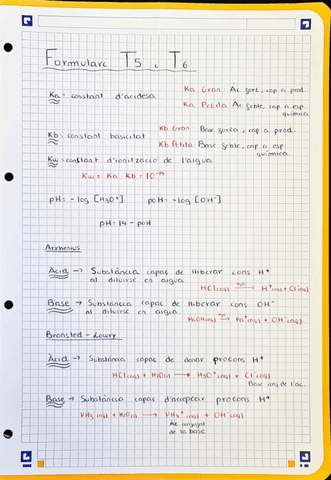 Formulari T5 i T6
Ka = constant d'acidesa
Ka Gran Àc fort, cap a prod.
Ka Petita Àc feble, cap a esp. química
Kb = constant basicitat
Kb Gran Base forta, cap a prod.
Kb Petita Base feble, cap a esp. química
Kw = constant d'ionització de l'aigua
Kw = Ka Kb = 10⁻¹⁴
pH = -log [H3O⁺] pOH = -log [OH⁻]
pH = 14 - pOH
Arrhenius
Acid -> Substància capaç de lliberar ions H⁺
al diluirse en aigua
HCl(aq) H2O→ H⁺(aq) + Cl⁻(aq)
Base -> Substància capaç de lliberar ions OH⁻
al diluirse en aigua
NaOH(aq) H2O→ Na⁺(aq) + OH⁻(aq)
Bronsted - Lowry
Acid -> Substància capaç de donar protons H⁺
HCl(aq) + H2O(l) → H3O⁺(aq) + Cl⁻(aq)
Base conj de l'àc.
Base -> Substància capaç d'acceptar protons H⁺
NH3(aq) + H2O(l) → NH4⁺(aq) + OH⁻(aq)
Àc. conjugat
de la base